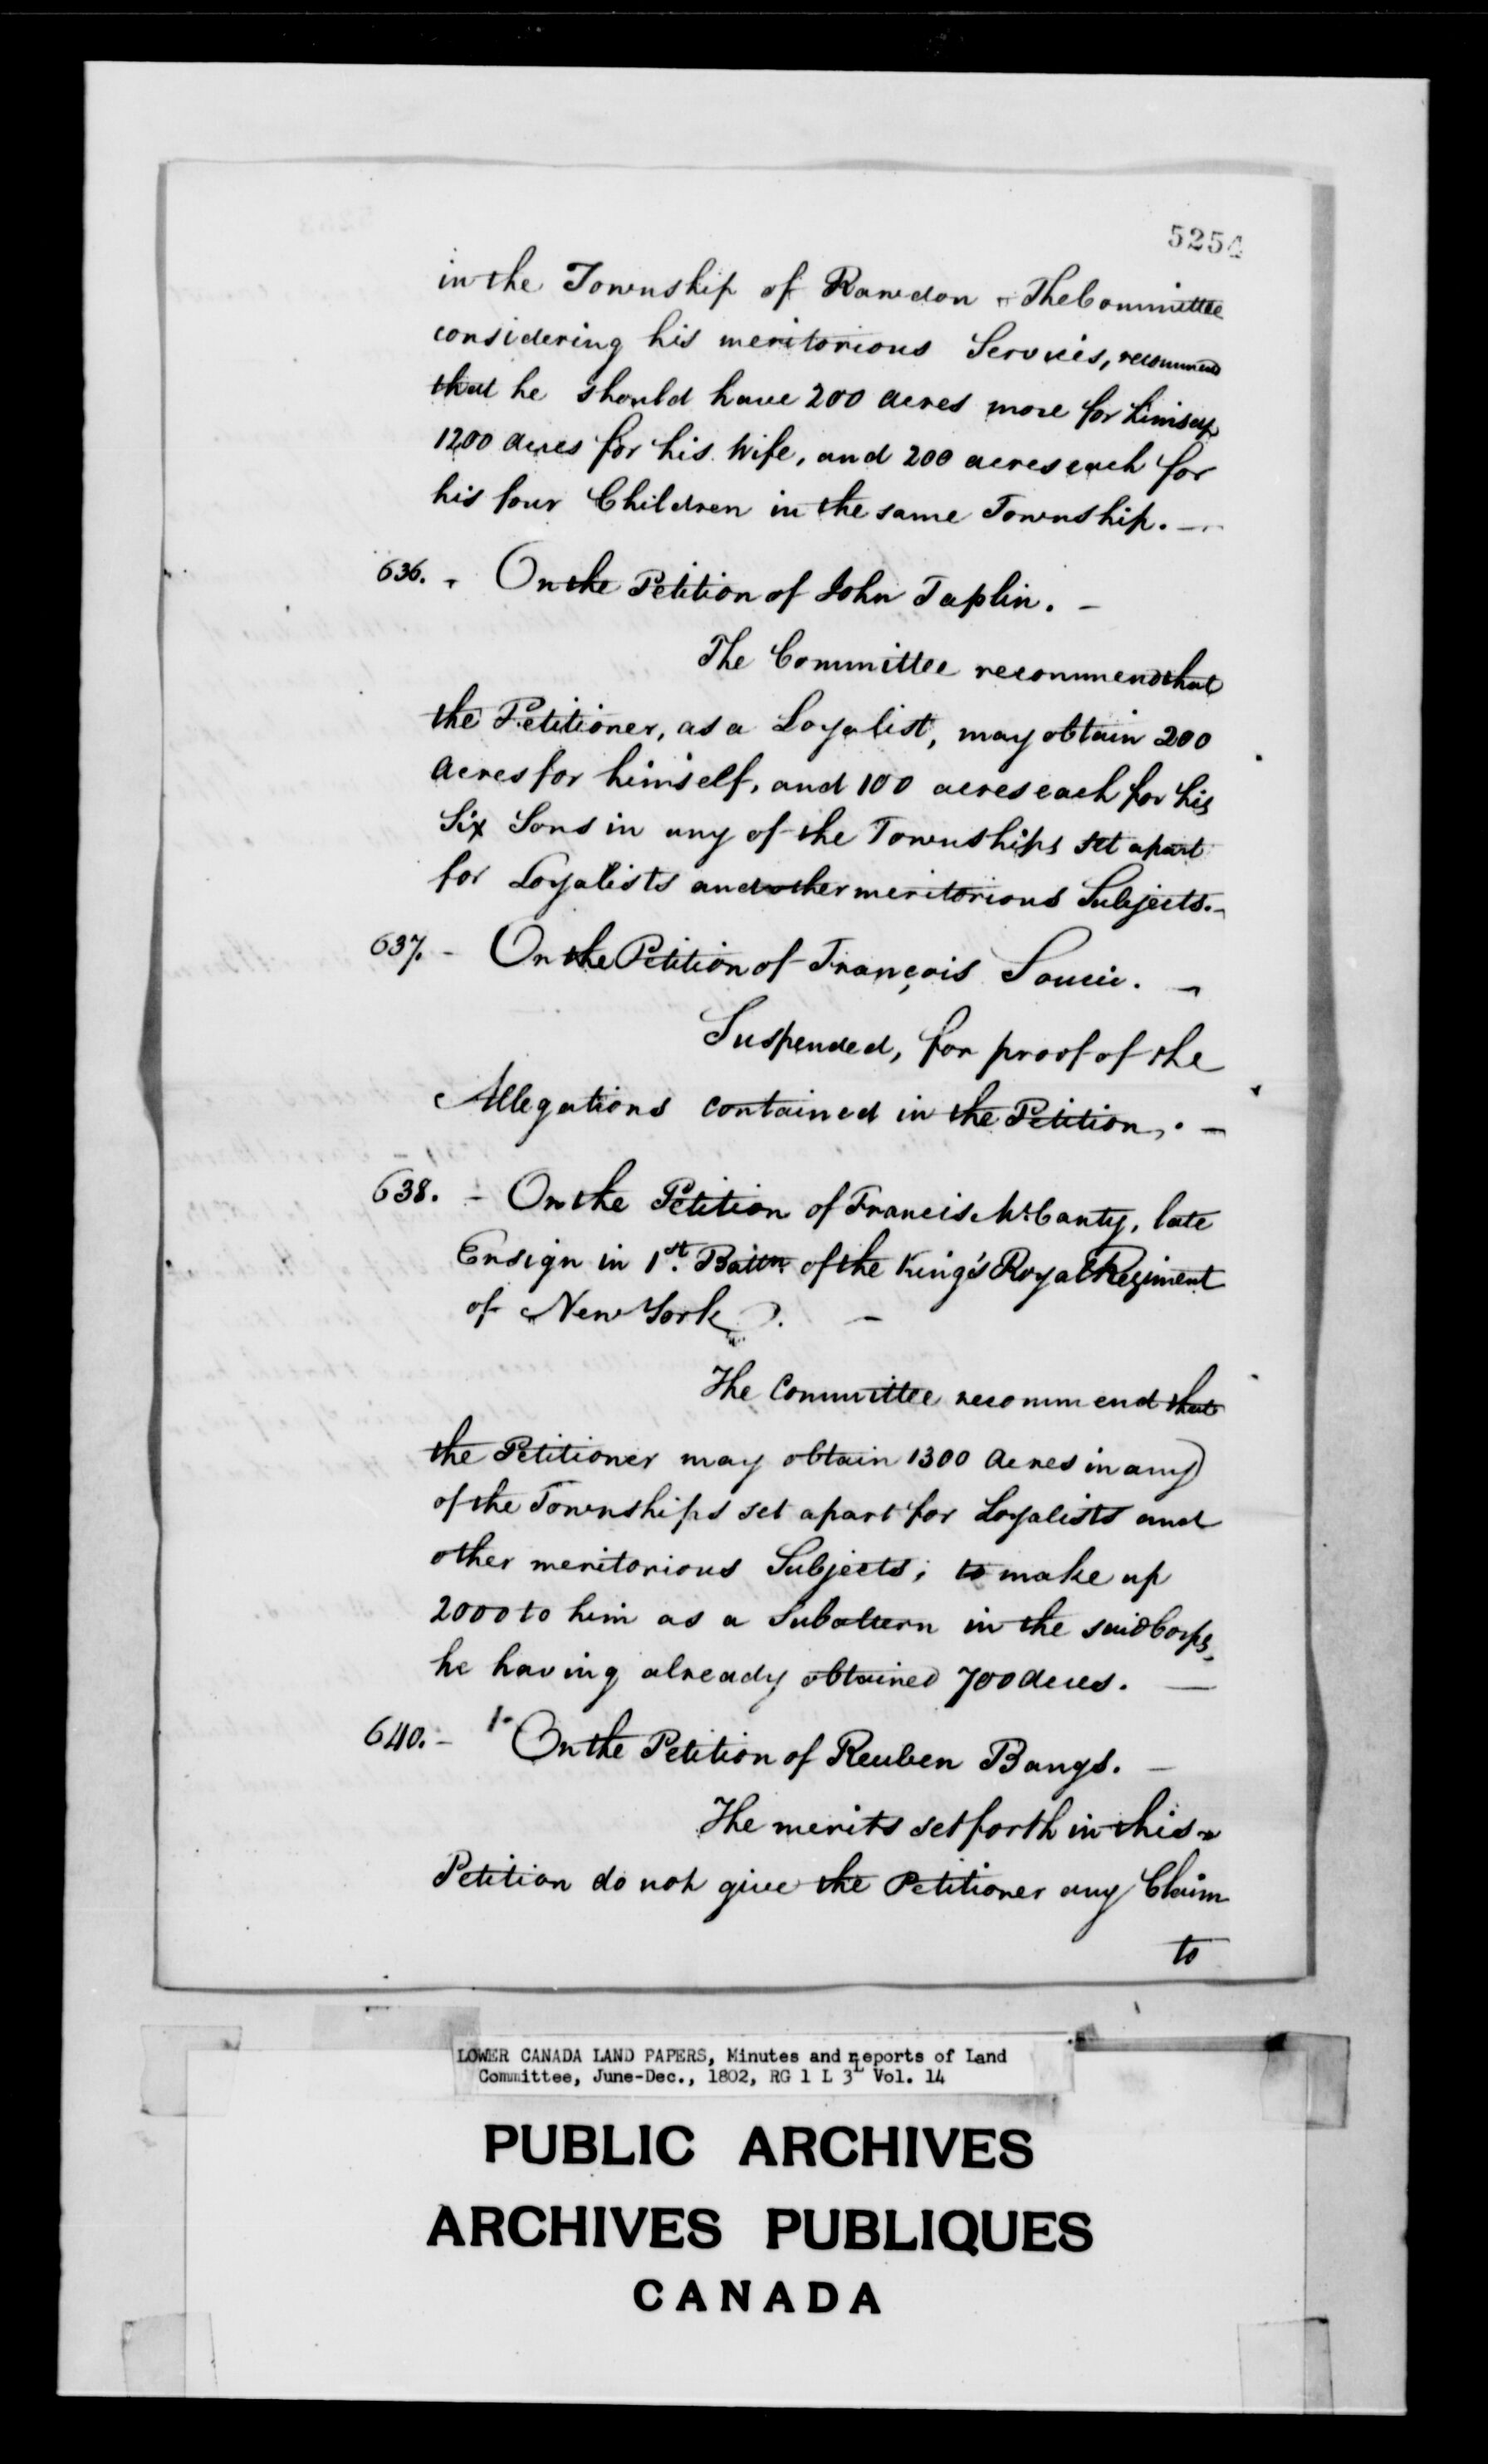 5254
in the Township of Rawdon - The Committee
considering his meritorious Services, recommend
that he should have 200 acres more for himself
1200 acres for his Wife, and 200 acres each for
his four Children in the same Township. —
636. - On the Petition of John Taplin. -
The Committee recommend that
the Petitioner, as a Loyalist, may obtain 200
Acres for himself, and 100 acres each for his
Six Sons in any of the Townships set apart
for Loyalists and other meritorious Subjects. -
637. - On the Petition of François Soucie. -
Suspended, for proof of the
Allegations contained in the Petition. -
638. - On the Petition of Francis McCarty, late
Ensign in 1st. Battn. of the King's Royal Regiment
of New York. -
The Committee recommend that
the Petitioner may obtain 1300 Acres in any
of the Townships set apart for Loyalists and
other meritorious Subjects; to make up
2000 to him as a Subaltern in the said Corps,
he having already obtained 700 Acres. —
640. - 1. On the Petition of Reuben Bangs. -
The merits set forth in this -
Petition do not give the Petitioner any Claim
to
LOWER CANADA LAND PAPERS, Minutes and reports of Land
Committee, June-Dec., 1802, RG 1 L 3L Vol. 14
PUBLIC ARCHIVES
ARCHIVES PUBLIQUES
CANADA